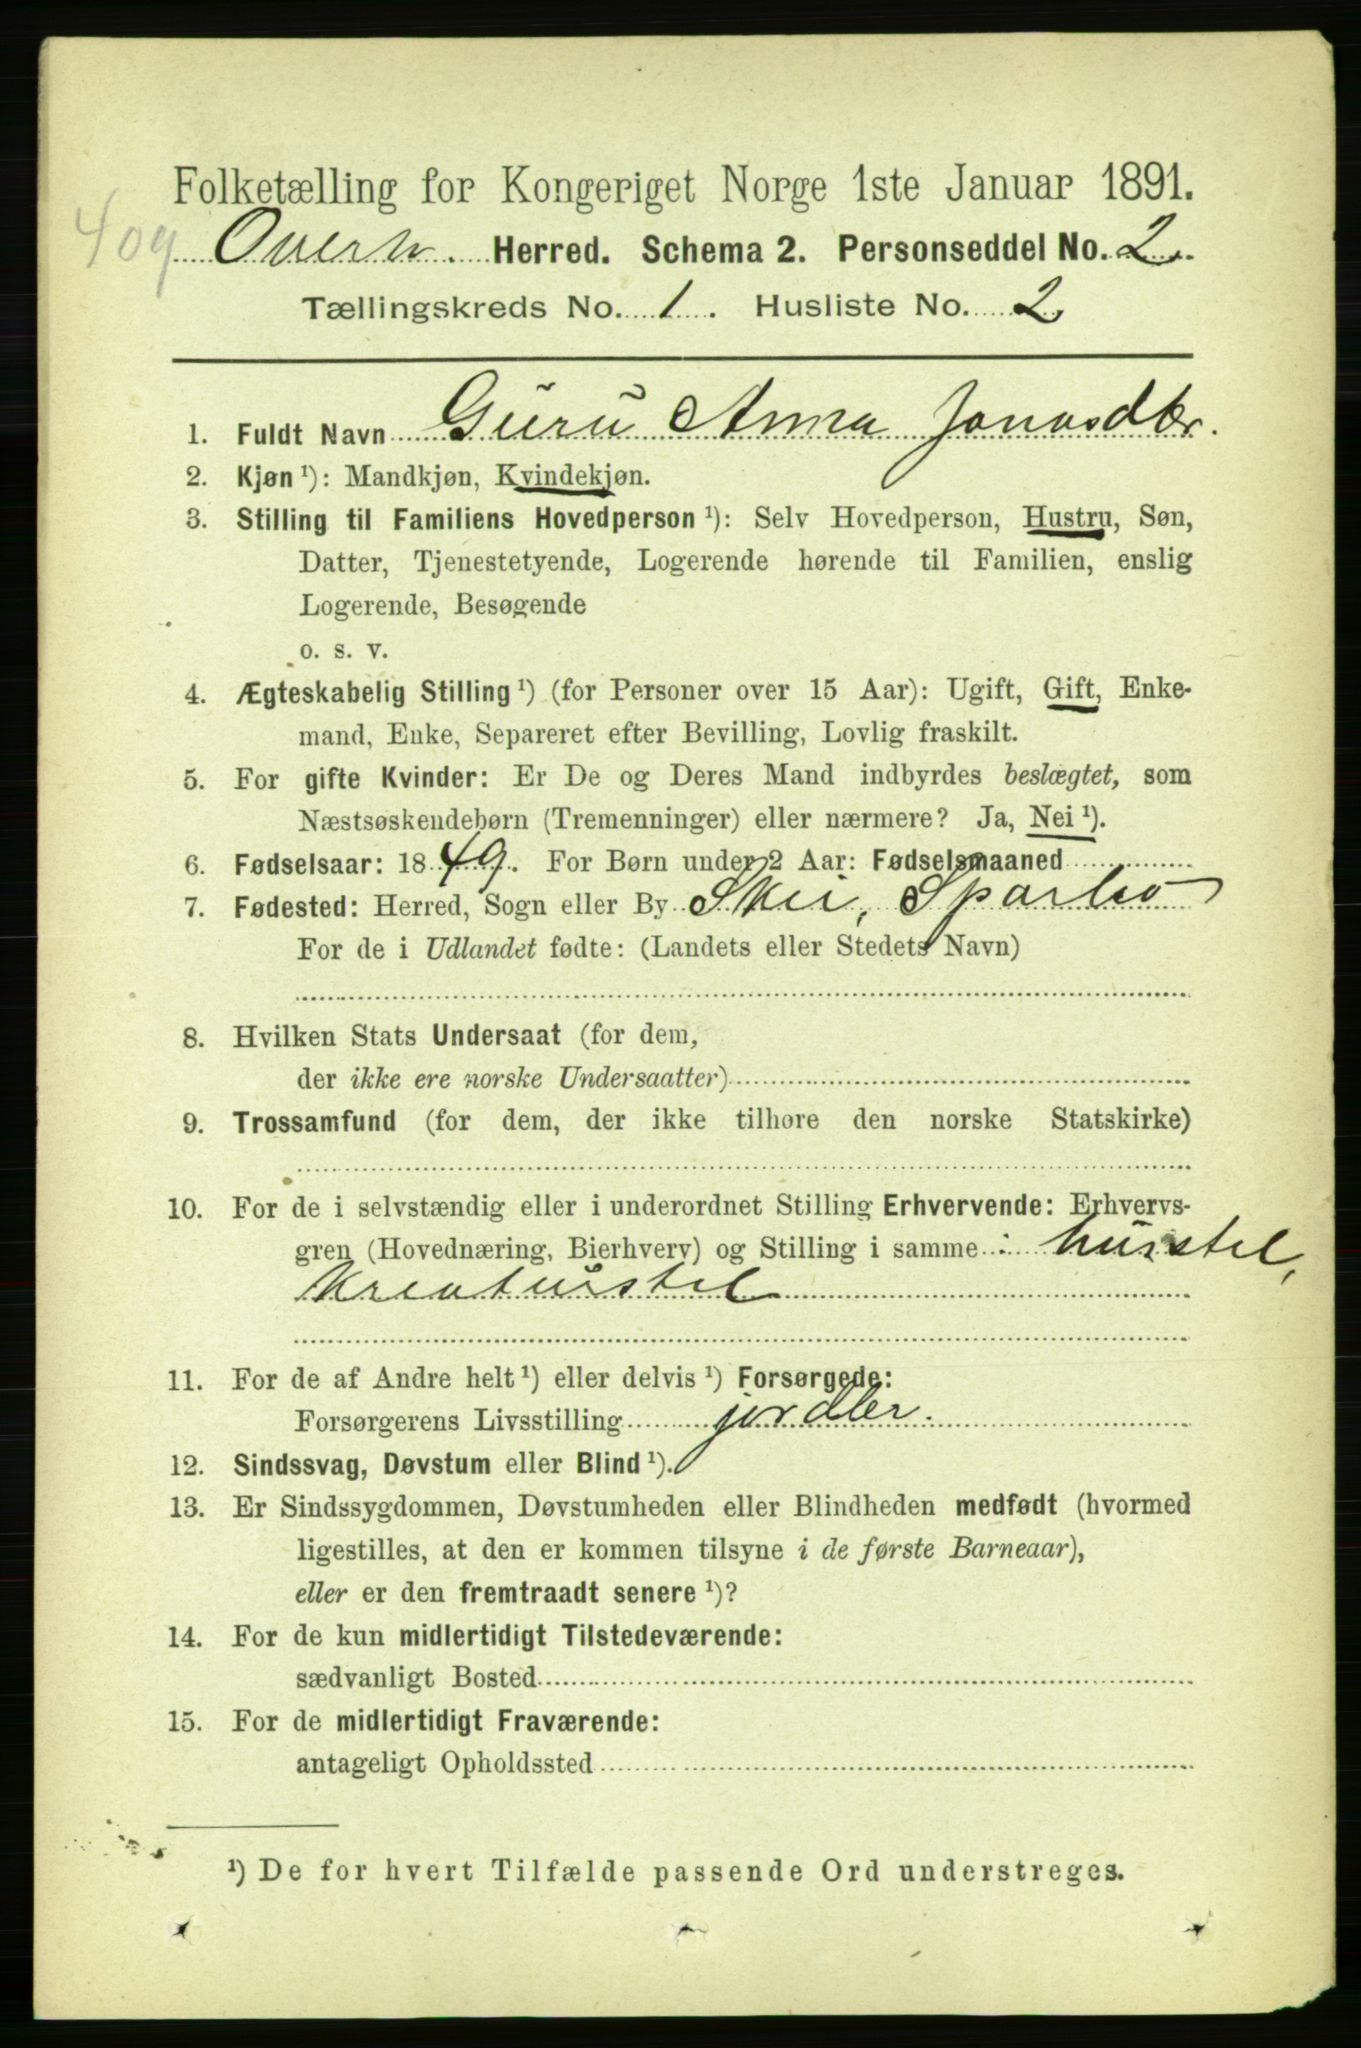 Folketælling for Kongeriget Norge 1ste Januar 1891.
409 Overh. Herred. Schema 2. Personseddel No. 2.
Tællingskreds No. 1. Husliste No. 2
1. Fuldt Navn Guru Anna Jonasdtr.
2. Kjøn ¹): Mandkjøn, Kvindekjøn.
3. Stilling til Familiens Hovedperson ¹): Selv Hovedperson, Hustru, Søn,
Datter, Tjenestetyende, Logerende hørende til Familien, enslig
Logerende, Besøgende
o. s. v.
4. Ægteskabelig Stilling ¹) (for Personer over 15 Aar): Ugift, Gift, Enke-
mand, Enke, Separeret efter Bevilling, Lovlig fraskilt.
5. For gifte Kvinder: Er De og Deres Mand indbyrdes beslægtet, som
Næstsøskendebørn (Tremenninger) eller nærmere? Ja, Nei ¹).
6. Fødselsaar: 1849. For Børn under 2 Aar: Fødselsmaaned
7. Fødested: Herred, Sogn eller By Skei, Sparbo
For de i Udlandet fødte: (Landets eller Stedets Navn)
8. Hvilken Stats Undersaat (for dem,
der ikke ere norske Undersaatter)
9. Trossamfund (for dem, der ikke tilhøre den norske Statskirke)
10. For de i selvstændig eller i underordnet Stilling Erhvervende: Erhvervs-
gren (Hovednæring, Bierhverv) og Stilling i samme : husstel,
kreaturstel
11. For de af Andre helt ¹) eller delvis ¹) Forsørgede:
Forsørgerens Livsstilling jordbr.
12. Sindssvag, Døvstum eller Blind ¹).
13. Er Sindssygdommen, Døvstumheden eller Blindheden medfødt (hvormed
ligestilles, at den er kommen tilsyne i de første Barneaar),
eller er den fremtraadt senere ¹)?
14. For de kun midlertidigt Tilstedeværende:
sædvanligt Bosted
15. For de midlertidigt Fraværende:
antageligt Opholdssted
¹) De for hvert Tilfælde passende Ord understreges.